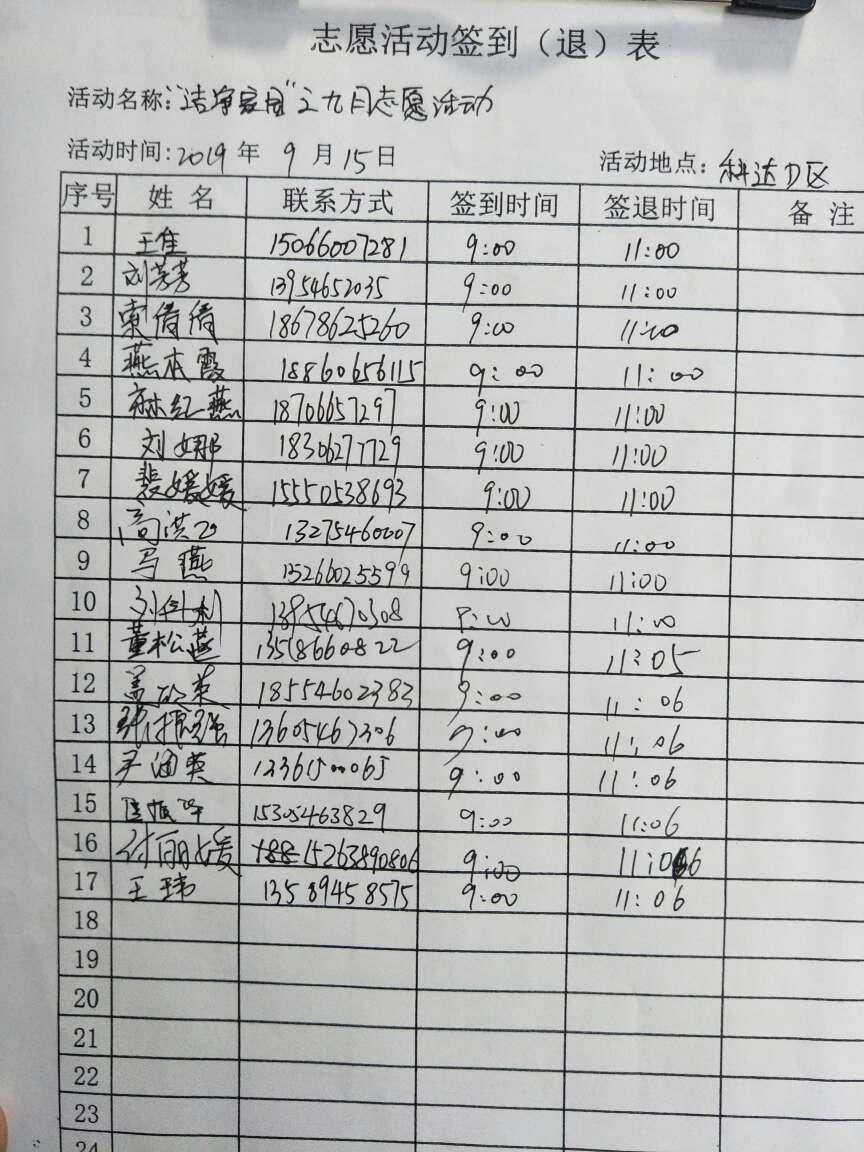 志愿活动签到（退）表
活动名称："洁净家园"之九月志愿活动
活动时间：2019年 9月15日 活动地点：科达D区
序号 姓名 联系方式 签到时间 签退时间 备注
1 王佳 15066007281 9:00 11:00
2 刘芳芳 13954652035 9:00 11:00
3 索倩倩 18678625260 9:00 11:00
4 燕本霞 18860656115 9:00 11:00
5 林红燕 18706657297 9:00 11:00
6 刘娜 18306277729 9:00 11:00
7 裴媛媛 15550538693 9:00 11:00
8 高洪 13275460007 9:00 11:00
9 马燕 135266025599 9:00 11:00
10 刘 13954670308 9:00 11:00
11 董松燕 13518660822 9:00 11:05
12 盖 英 18554602383 9:00 11:06
13 张振强 13605467306 9:00 11:06
14 尹 英 9:00 11:06
15 振华 15305463829 9:00 11:06
16 付丽媛 15263890806 9:00 11:06
17 王玮 13589458575 9:00 11:06
18
19
20
21
22
23
24